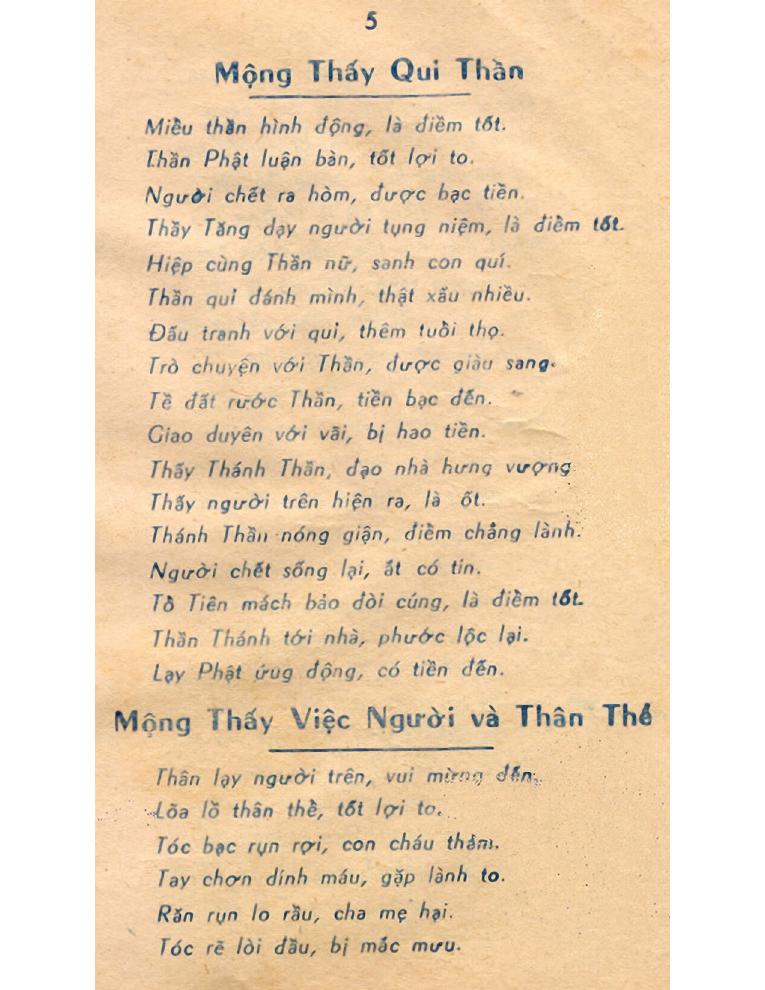 5
Mộng Thấy Qui Thần
Miều thần hình động, là điềm tốt.
Thần Phật luận bàn, tốt lợi to.
Người chết ra hòm, được bạc tiền.
Thầy Tăng dạy người tụng niệm, là điềm tốt.
Hiệp cùng Thần nữ, sanh con quí.
Thần quỉ đánh mình, thật xấu nhiều.
Đấu tranh với quỉ, thêm tuổi thọ.
Trò chuyện với Thần, được giàu sang.
Tề đất rước Thần, tiền bạc đến.
Giao duyên với vãi, bị hao tiền.
Thấy Thánh Thần, đạo nhà hưng vượng
Thấy người trên hiện ra, là ốt.
Thánh Thần nóng giận, điềm chẳng lành.
Người chết sống lại, ắt có tin.
Tổ Tiên mách bảo đòi cúng, là điềm tốt.
Thần Thánh tới nhà, phước lộc lại.
Lạy Phật ứug động, có tiền đến.
Mộng Thấy Việc Người và Thân Thể
Thân lạy người trên, vui mừng đến.
Lõa lồ thân thể, tốt lợi to.
Tóc bạc rụn rợi, con cháu thảm.
Tay chơn dính máu, gặp lành to.
Răn rụn lo rầu, cha mẹ hại.
Tóc rẽ lòi đầu, bị mắc mưu.